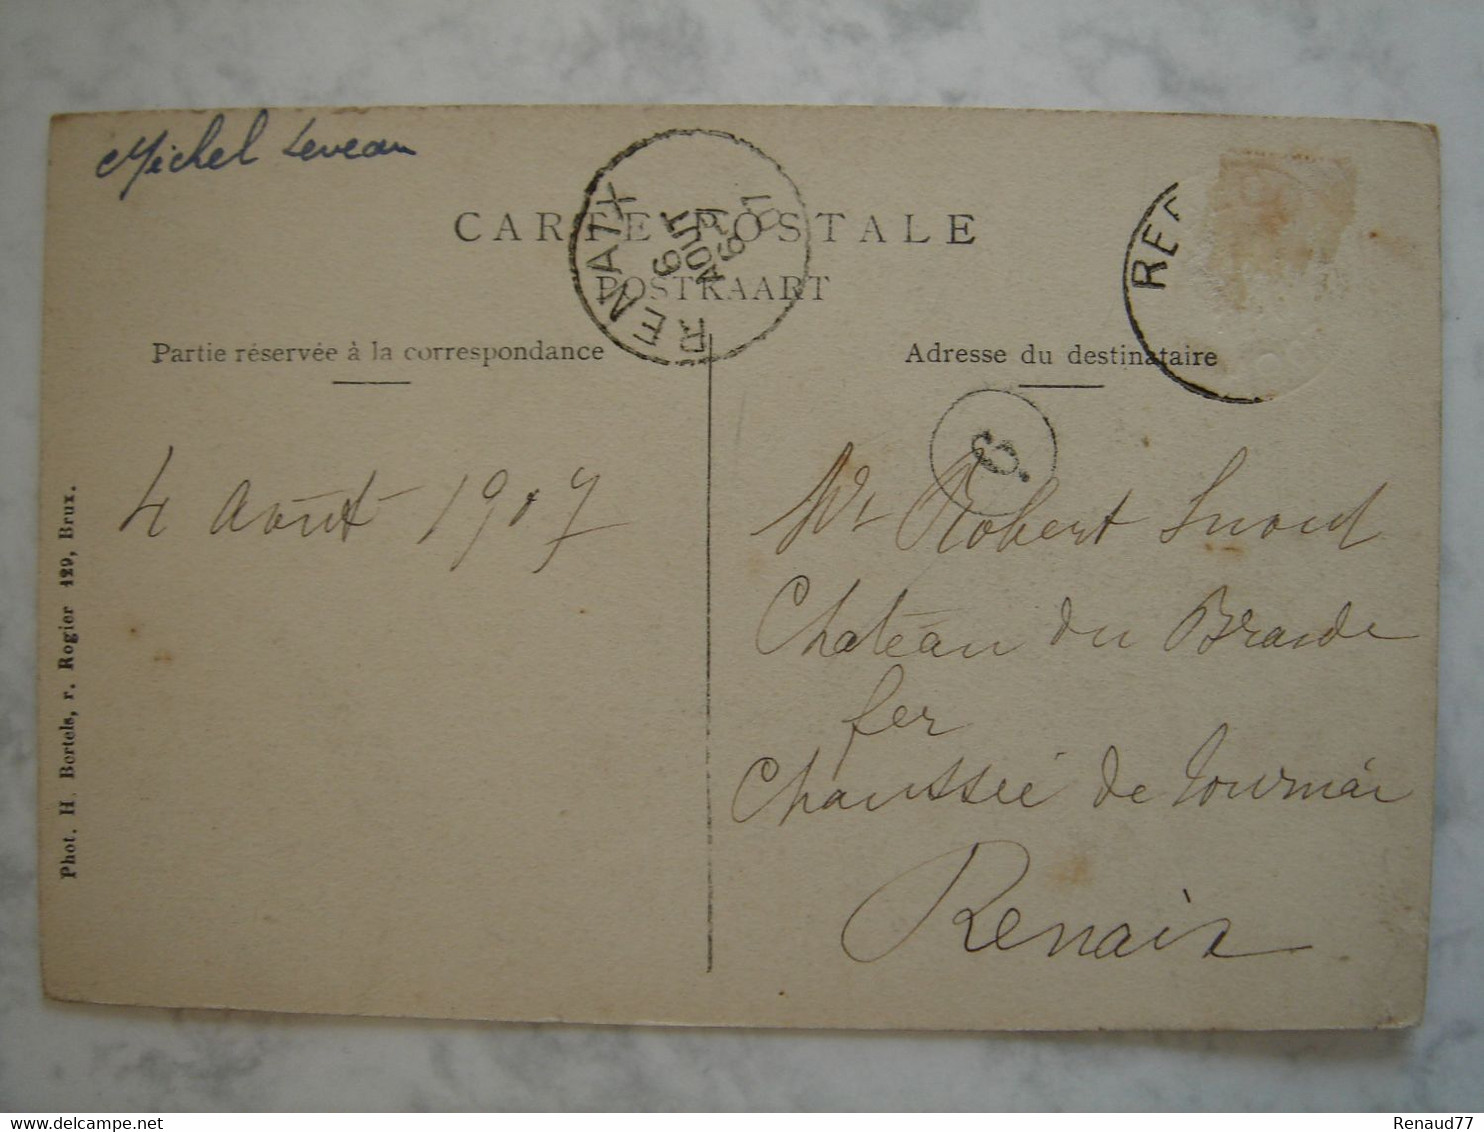 Michel Leveau
CARTE POSTALE
POSTKAART
RENAIX
6 AOUT
Partie réservée à la correspondance
Adresse du destinataire
6
4 Août 1907
Mr Robert Snoul
Château du Bras de
fer
Chaussée de Tournai
Renaix
Phot. H. Bertels, r. Rogier 129, Brux.
Renaud77